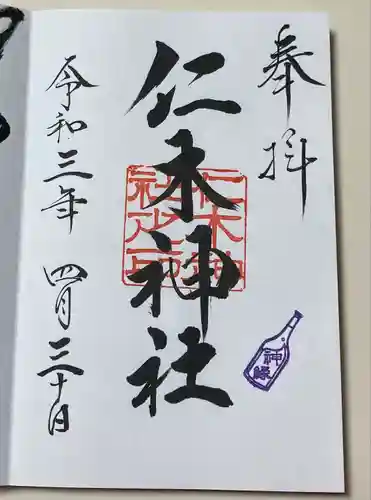 奉拝
仁木神社
仁木神社之印
令和三年 四月三十日